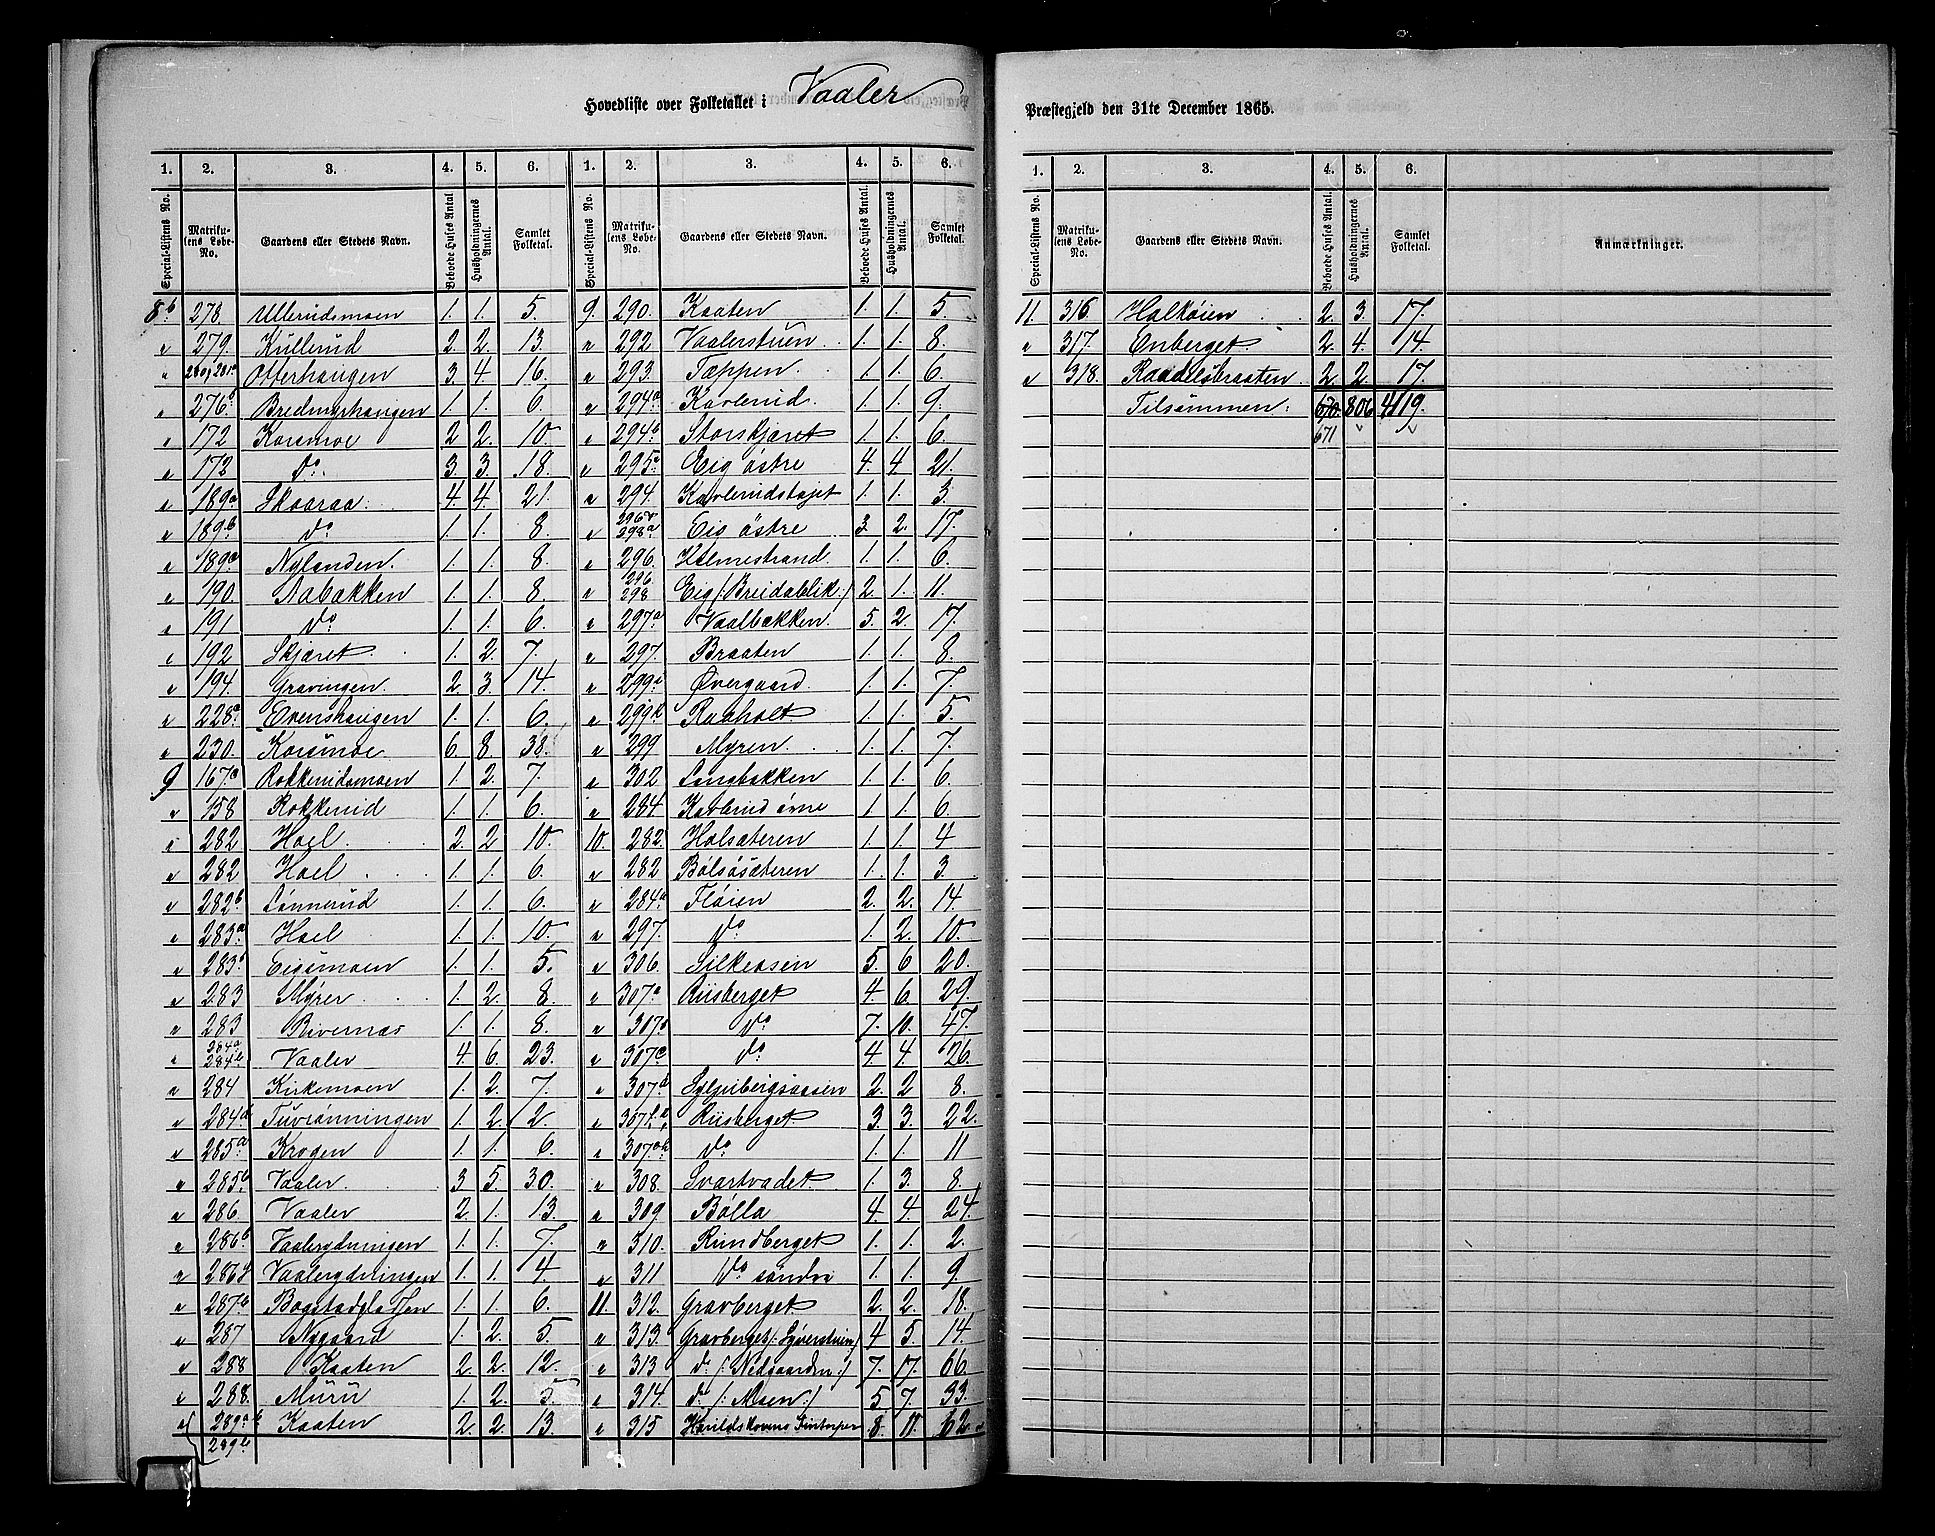 Hovedliste over Folketallet i Vaaler
1. 2. 3. 4. 5. 6. 1. 2. 3. 4. 5. 6.
Special-Listens No. Matrikulens Løbe-No. Gaardens eller Stedets Navn. Beboede Huses Antal Husholdningernes Antal. Samlet Folketal. Special-Listens No. Matrikulens Løbe-No. Gaardens eller Stedets Navn. Beboede Huses Antal Husholdningernes Antal. Samlet Folketal.
8b. 278. Ullerudsmoen 1. 1. 5. 9. 290. Kaaten 1. 1. 5.
" 279. Kullerud 2. 2. 13. " 292. Vaalerstuen 1. 1. 8.
" 280, 281a Otterhaugen 3. 4. 16. " 293 Tæppen 1. 1. 6.
" 276b Bredingshaugen 1. 1. 6. " 294a Kavlerud 1. 1. 9.
" 172 Korsmoe 2. 2. 10. " 294b Storskjæret 1. 1. 6.
" 173 do. 3. 3. 18. " 295a Eig østre 4. 4. 21.
" 189a Skaaraa 4. 4. 21. " 294. Kavlerudstøjet 1. 1. 3.
" 189b do 1. 1. 8. " 296 298a Eig østre 3. 2. 17.
" 189a Nylenden 1. 1. 8. " 296. Holmestrand 1. 1. 6.
" 190. Aabakken 1. 1. 8. " 296 298 Eig /: Breidablik :/ 2. 1. 11.
" 191 do 1. 1. 6. " 297a Vaalbækken 5. 2. 17.
" 192 Skjæret 1. 2. 7. " 297. Braaten 1. 1. 8.
" 194. Gravingen 2. 3. 14. " 299a Øvergaard 1. 1. 7.
" 228a Evenshaugen 1. 1. 6. " 299b Raaholt 1. 1. 5.
" 230. Korsmoe 6. 8. 38. " 299 Myren 1. 1. 7.
9 167c Rokkerudsmoen 1. 2. 7. " 302 Langbakken 1. 1. 6.
" 158 Rokkerud 1. 1. 6. " 284 Kavlerud øvre 1. 1. 6.
" 282 Hoel 2. 2. 10. 10. 282. Holsæteren 1. 1. 4
" 282 Hoel 1. 1. 6. " 282 Bølsøsæteren 1. 1. 3.
" 282b Lønnerud 1. 1. 6. " 284a Fløien 2. 2. 14.
" 283a Hoel 1. 1. 10. " 297. do 1. 2. 10.
" 283b Eigsmoen 1. 1. 5. " 306. Silkeaasen 5. 6. 20.
" 283 Myrer 1. 2. 8. " 307a Riisberget 4. 6. 29.
" 283 Bivernæs 1. 1. 8. " 307b do 7. 10. 47.
" 284a 284b Vaaler 4. 6. 23. " 307c do 4. 4. 26.
" 284 Kirkemoen 1. 2. 7. " 307d 2. 2 8.
" 284d Turrønningen 1. 2. 2. " Riisberget 3. 3. 22.
" 285a Krogen 1. 1. 6. " 307ab do 1. 1. 11
" 285b Vaaler 3 5. 30. " 308. Svartvadet 1. 3. 8.
" 286. Vaaler 2. 1. 13. " 309 Bølla 4. 4. 24.
" 286b Vaalerydningen 1. 1. 7. " 310. Rundberget 1. 1. 2.
" 286d Vaalerydningen 1. 1. 4. " 311 do søndre 1. 1. 9.
" 287b Bogstadpladsen 1. 1. 6. 11. 312. Gravberget 2. 2. 18.
" 287 Nygaard 1. 2. 5. " 313. Gravberget /: Syverstuen :/ 4 5. 14.
" 288 Kaaten 2. 2. 12. " 313 do /: Nedgaarden :/ 7. 17. 66
" 288. Muru 1. 2. 5. " 314. do /: Moen :/ 5 7. 33.
" 289a 289b Kaaten 2. 2. 13. " 315 8. 11. 62.
Præstegjeld den 31te December 1865.
1. 2. 3. 4. 5. 6.
Special-Listens No. Matrikulens Løbe-No. Gaardens eller Stedets Navn. Beboede Huses Antal. Husholdningernes Antal. Samlet Folketal. Anmærkninger.
11. 316. Halkøien 2. 3. 17.
" 317. Enberget 2. 4. 14.
" 318. Raadelsbraaten 2. 2. 17.
Tilsammen 670. 806 4119.
671